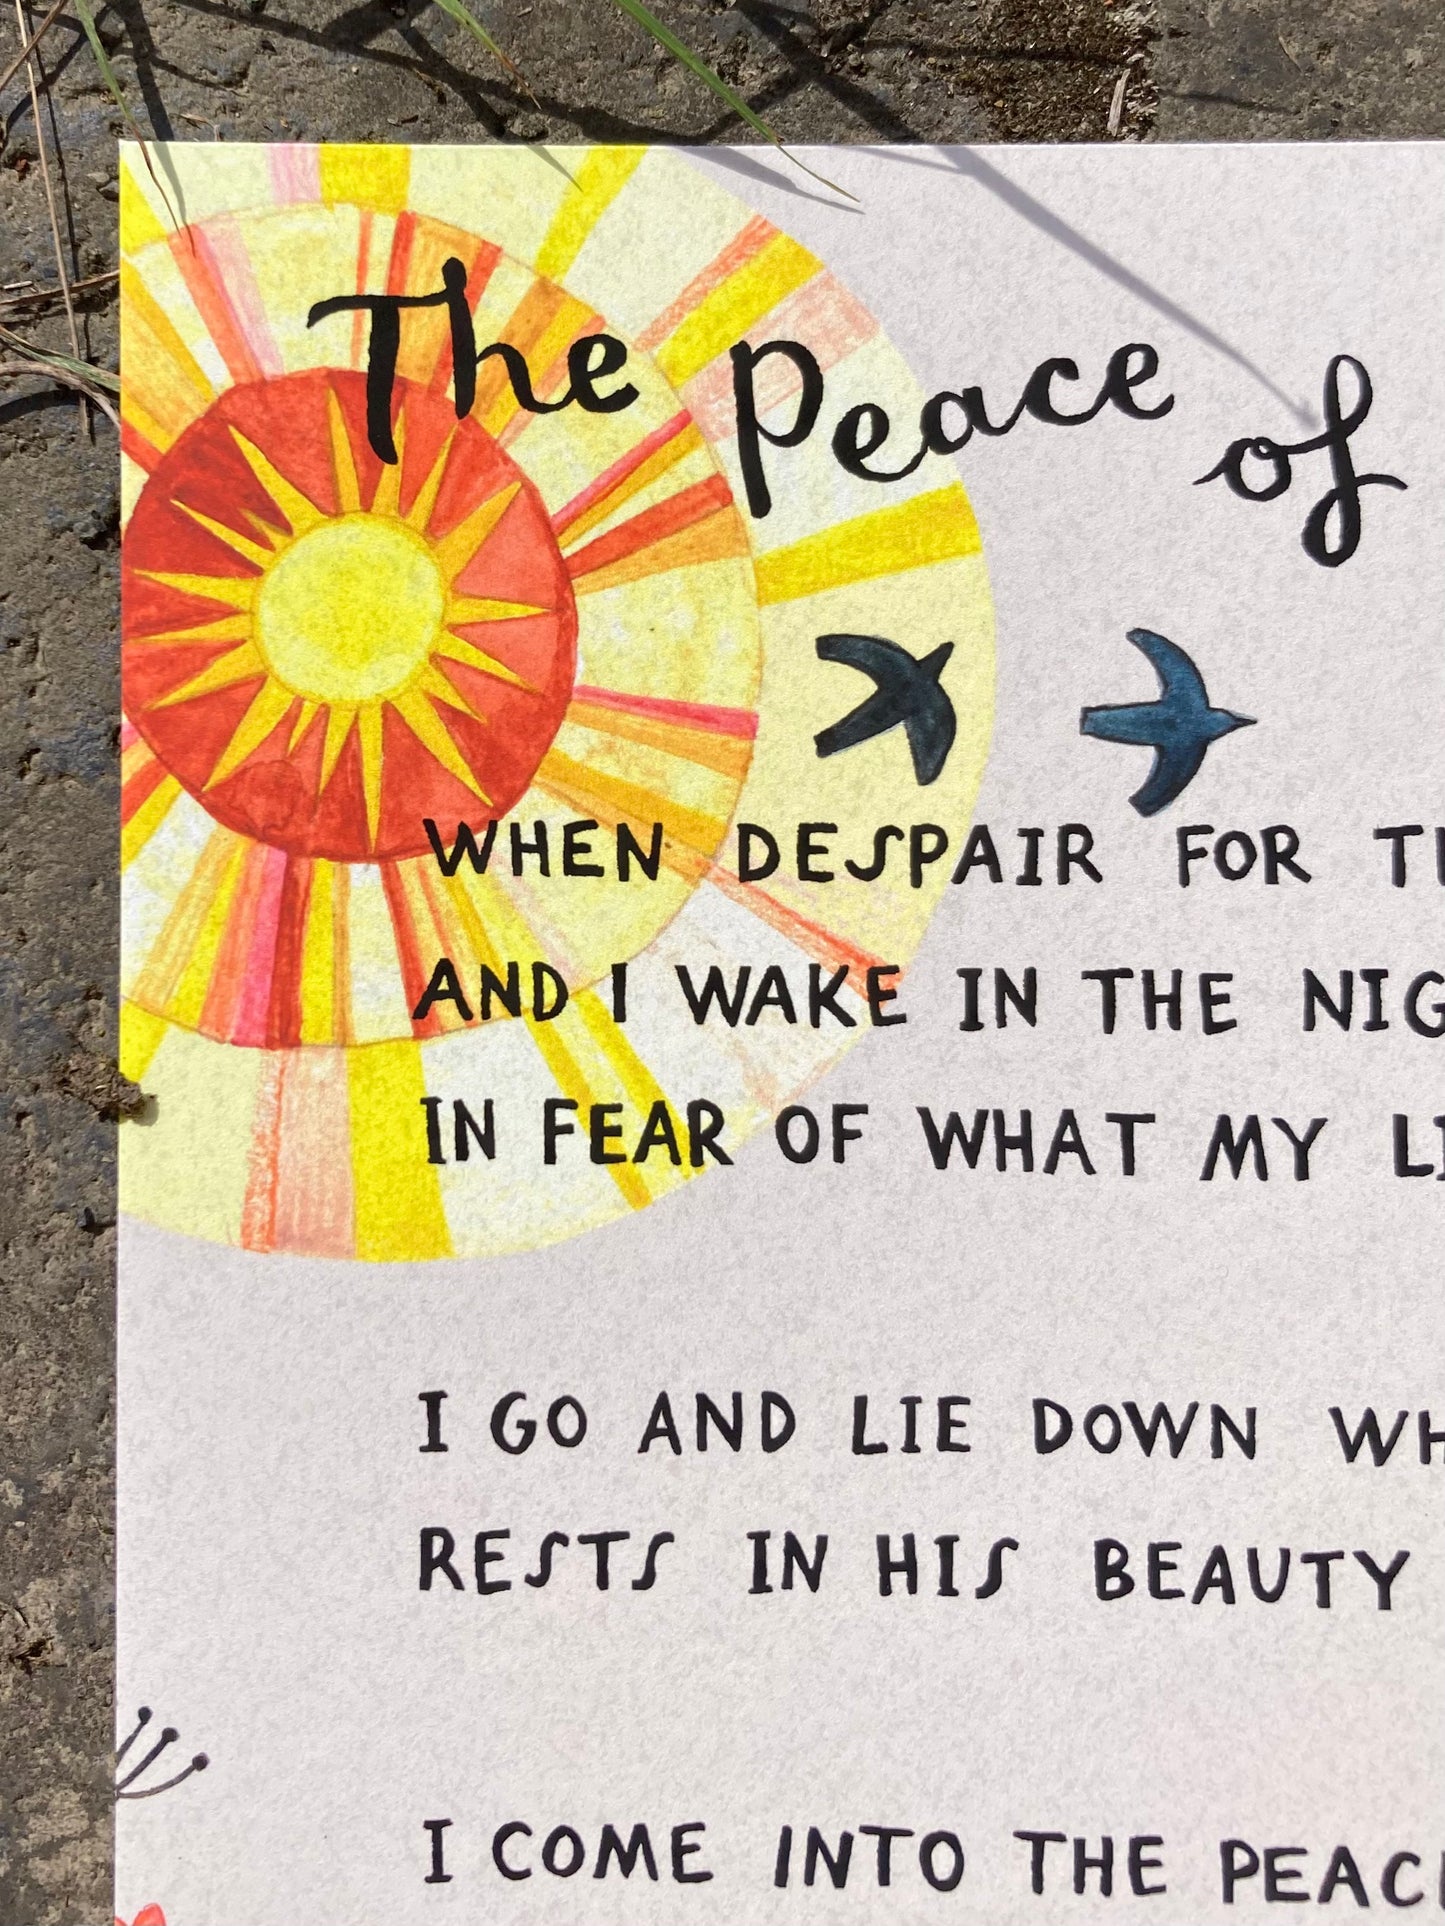 The Peace of
WHEN DESPAIR FOR
AND I WAKE IN THE
IN FEAR OF WHAT MY
I GO AND LIE DOWN
RESTS IN HIS BEAUTY
I COME INTO THE